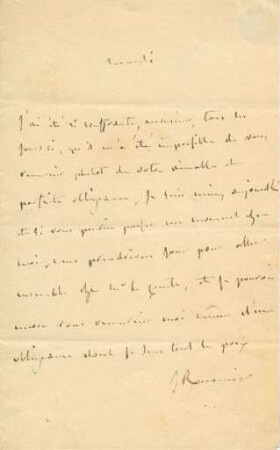 Samedi
J'ai été si souffrante, monsieur, tous les
jours ci, qu'il m'a été impossible de vous
remercier plutot de votre aimable et
parfaite obligeance, Je suis mieux aujourd'hui
et si vous pouviez passer un moment chez
moi, nous prendrions jour pour aller
ensemble chez Mr le et je pourrai
vous remercier moi même d'une
obligeance dont je sens tout le prix